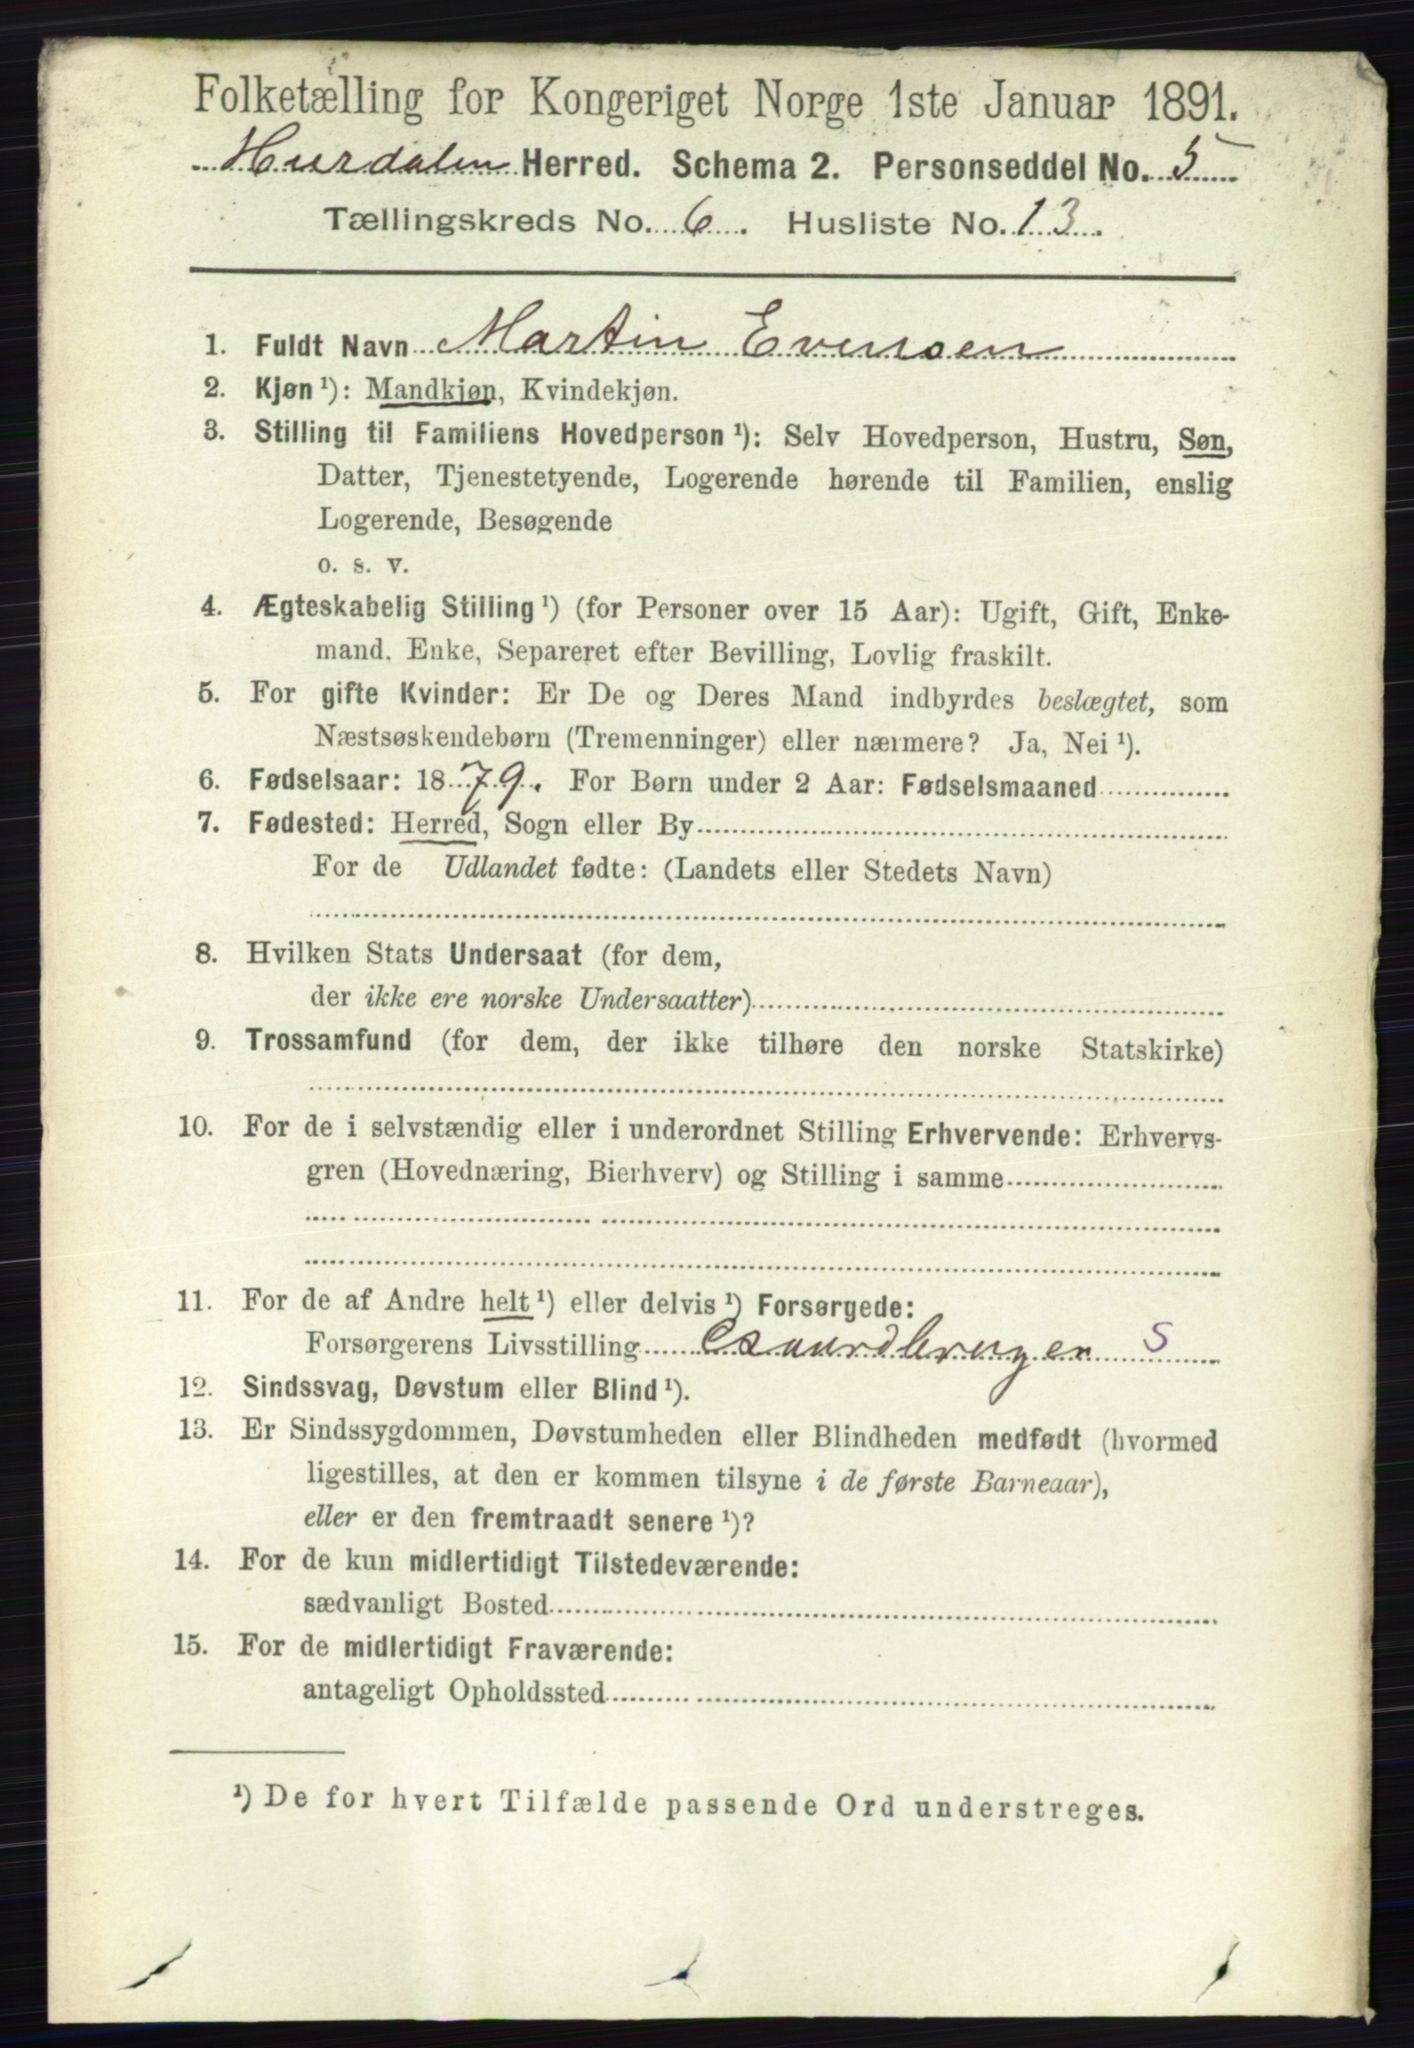 Folketælling for Kongeriget Norge 1ste Januar 1891.
Hurdalen Herred. Schema 2. Personseddel No. 5
Tællingskreds No. 6. Husliste No. 13.
1. Fuldt Navn Martin Evensen
2. Kjøn ¹): Mandkjøn, Kvindekjøn.
3. Stilling til Familiens Hovedperson ¹): Selv Hovedperson, Hustru, Søn,
Datter, Tjenestetyende, Logerende hørende til Familien, enslig
Logerende, Besøgende
o. s. v.
4. Ægteskabelig Stilling ¹) (for Personer over 15 Aar): Ugift, Gift, Enke-
mand, Enke, Separeret efter Bevilling, Lovlig fraskilt.
5. For gifte Kvinder: Er De og Deres Mand indbyrdes beslægtet, som
Næstsøskendebørn (Tremenninger) eller nærmere? Ja, Nei ¹).
6. Fødselsaar: 1879. For Børn under 2 Aar: Fødselsmaaned
7. Fødested: Herred, Sogn eller By
For de Udlandet fødte: (Landets eller Stedets Navn)
8. Hvilken Stats Undersaat (for dem,
der ikke ere norske Undersaatter)
9. Trossamfund (for dem, der ikke tilhøre den norske Statskirke)
10. For de i selvstændig eller i underordnet Stilling Erhvervende: Erhvervs-
gren (Hovednæring, Bierhverv) og Stilling i samme
11. For de af Andre helt ¹) eller delvis ¹) Forsørgede:
Forsørgerens Livsstilling Gaardbruger S
12. Sindssvag, Døvstum eller Blind ¹).
13. Er Sindssygdommen, Døvstumheden eller Blindheden medfødt (hvormed
ligestilles, at den er kommen tilsyne i de første Barneaar),
eller er den fremtraadt senere ¹)?
14. For de kun midlertidigt Tilstedeværende:
sædvanligt Bosted
15. For de midlertidigt Fraværende:
antageligt Opholdssted
¹) De for hvert Tilfælde passende Ord understreges.